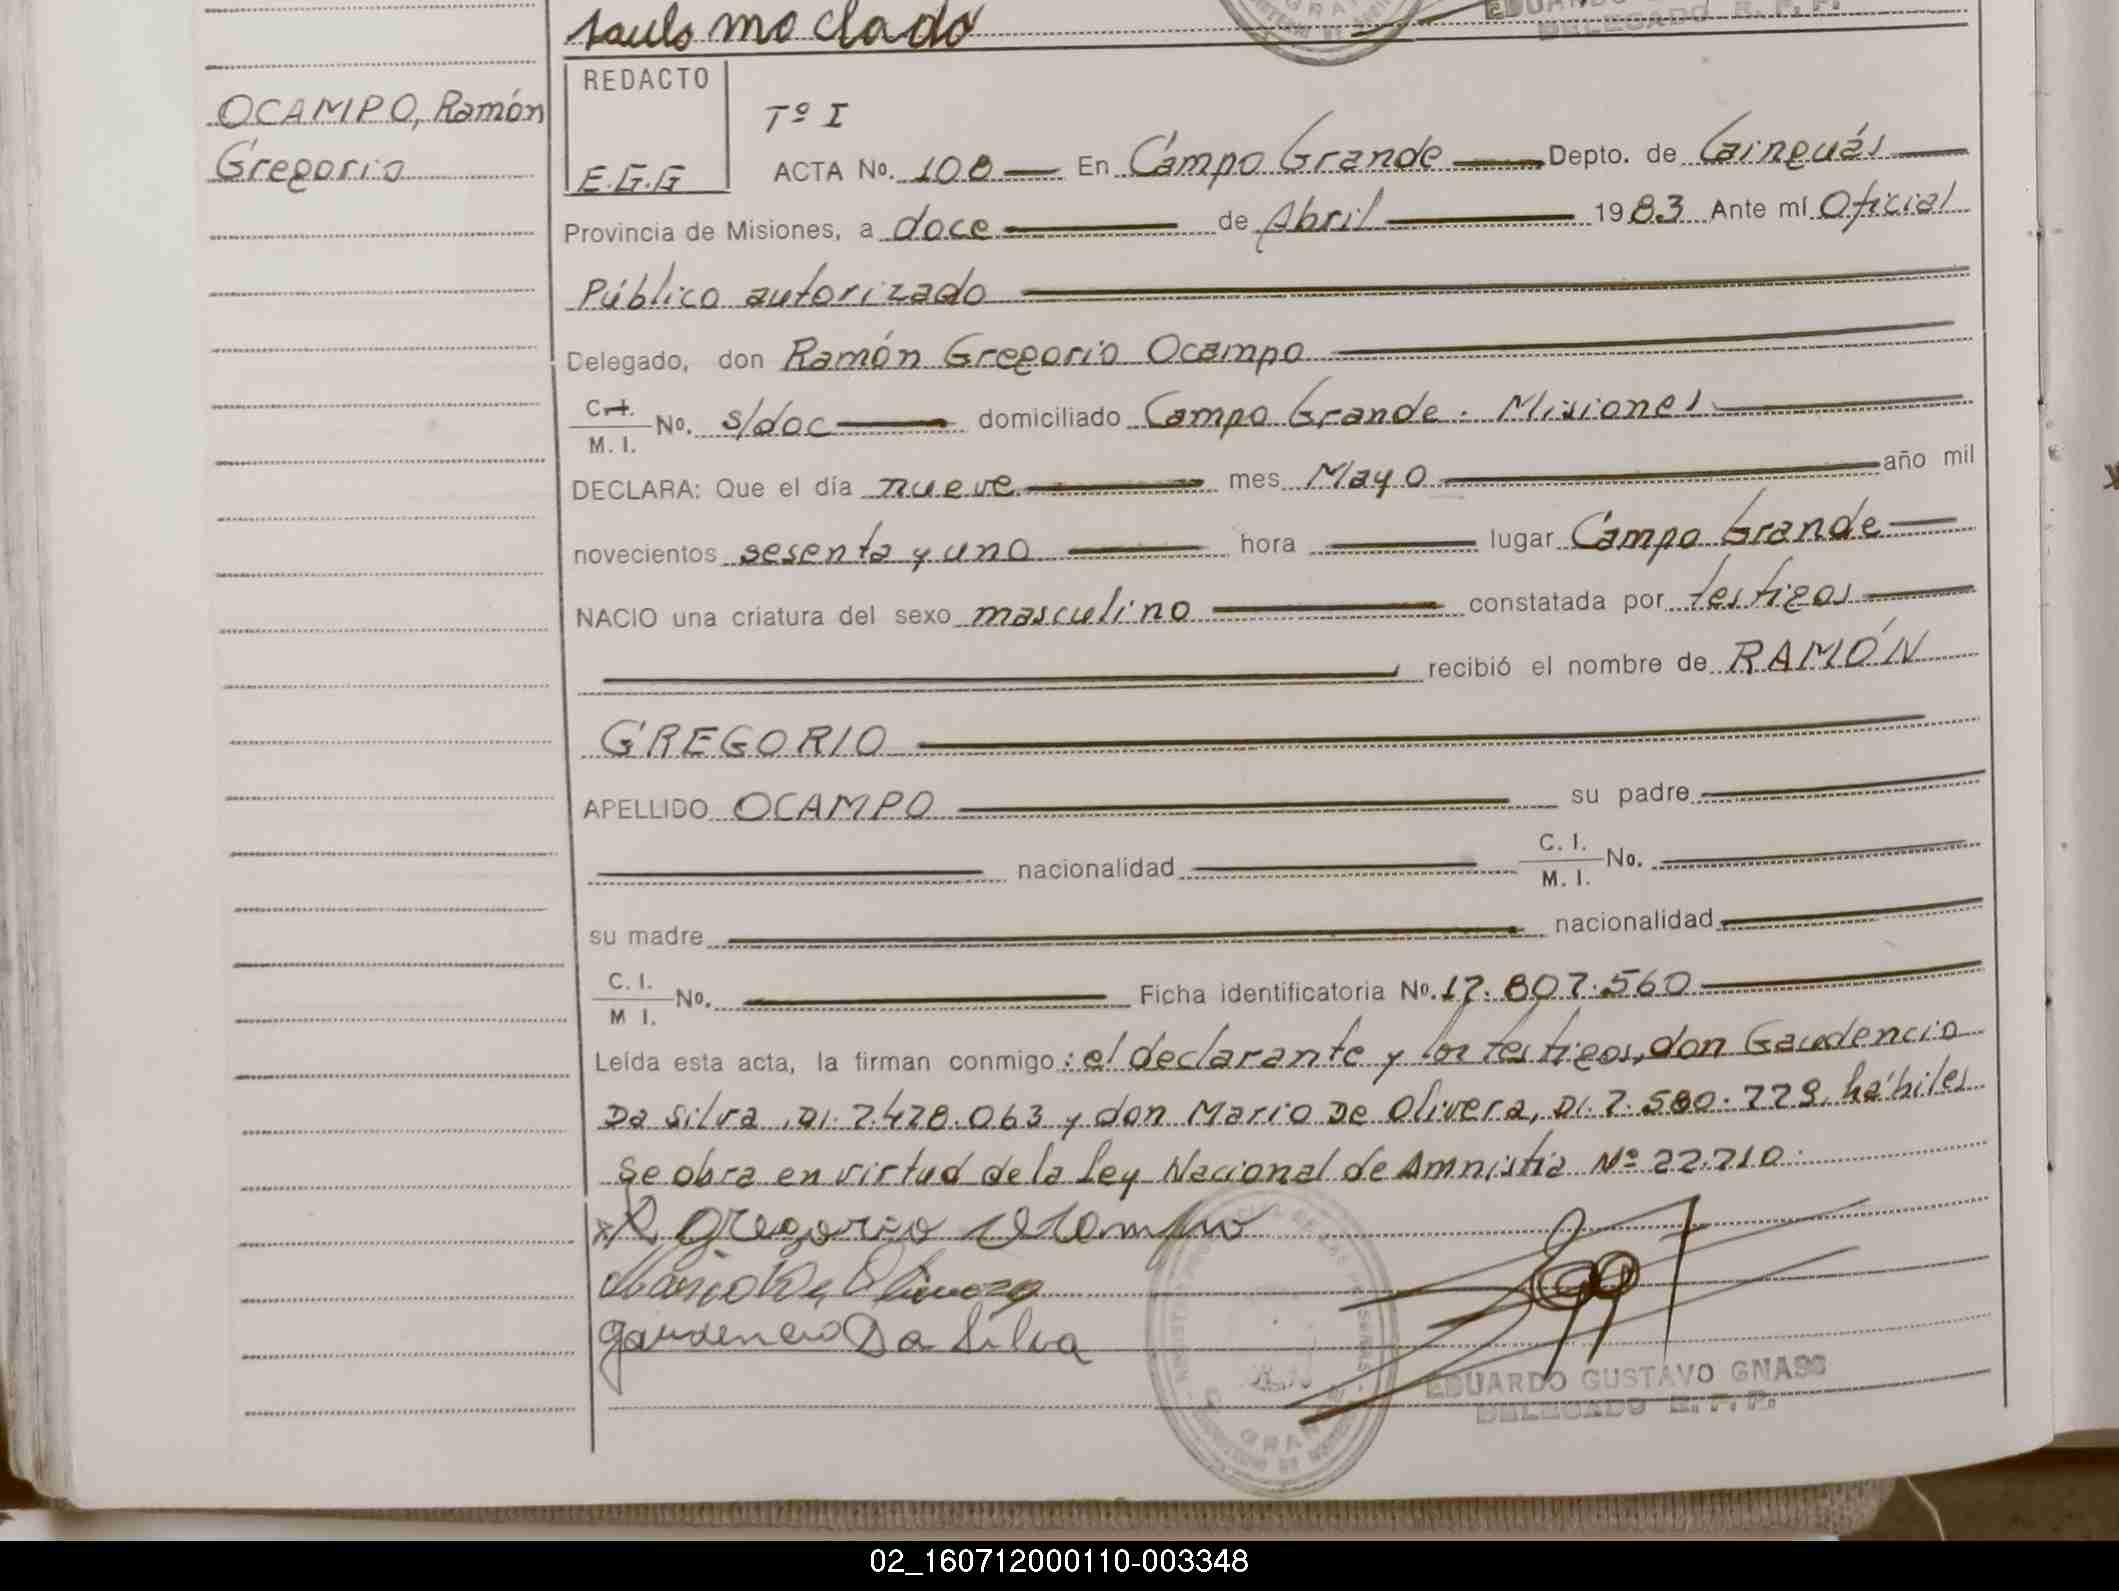 saulo machado
DELEGADO R. P. P.
OCAMPO, Ramón
Gregorio
REDACTO
E.G.G
Tº I
ACTA No. 108 En Campo Grande Depto. de Cainguás
Provincia de Misiones, a doce de Abril 1983 Ante mí Oficial
Público autorizado
Delegado, don Ramón Gregorio Ocampo
C. I.
M. I. No. s/doc domiciliado Campo Grande. Misiones
DECLARA: Que el día nueve mes Mayo año mil
novecientos sesenta y uno hora lugar Campo Grande
NACIO una criatura del sexo masculino constatada por testigos
recibió el nombre de RAMÓN
GREGORIO
APELLIDO OCAMPO su padre
nacionalidad C. I.
M. I. No.
su madre nacionalidad
C. I.
M I. No. Ficha identificatoria No. 17.807.560
Leída esta acta, la firman conmigo: el declarante y los testigos, don Gaudencio
Da Silva, DI. 7.478.063 y don Mario De Olivera, DI. 7.580.779, hábiles
Se obra en virtud de la Ley Nacional de Amnistía Nº 22.710.
x R Gregorio Ocampo
Mario De Olivera
gaudencio Da Silva
EDUARDO GUSTAVO GNASS
DELEGADO R. P. P.
02_160712000110-003348